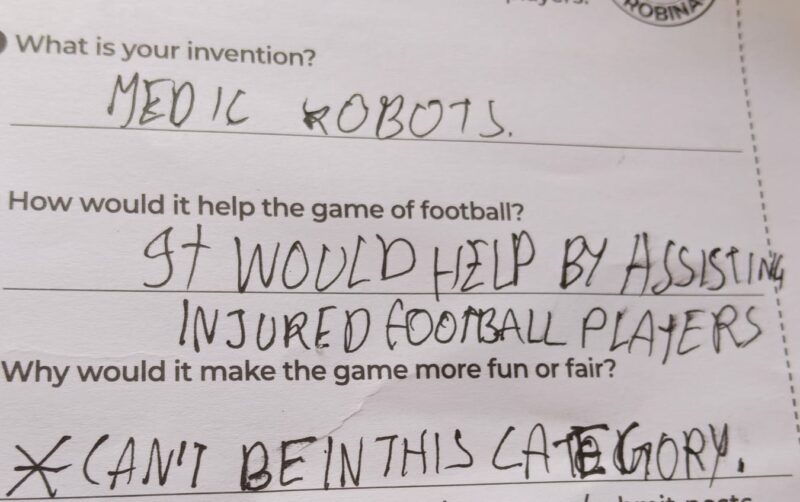 ROBINA
What is your invention?
MEDIC ROBOTS.
How would it help the game of football?
It WOULD HELP BY ASSISTING
INJURED FOOTBALL PLAYERS
Why would it make the game more fun or fair?
*CAN'T BE IN THIS CATEGORY.